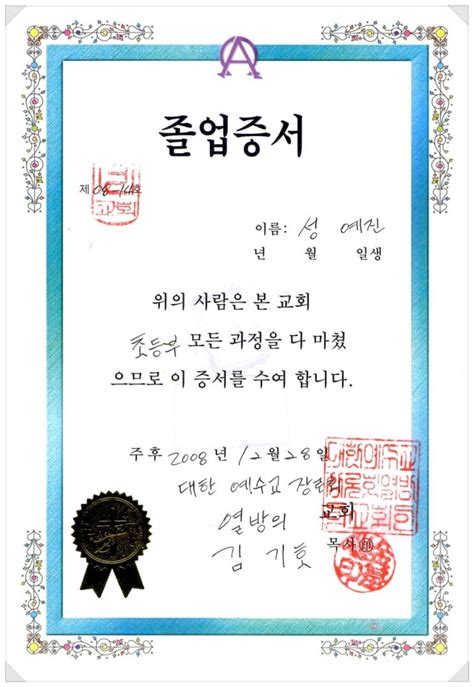 졸업증서
제 08-14호
이름: 성 예진
년 월 일생
위의 사람은 본 교회
초등부 모든 과정을 다 마쳤
으므로 이 증서를 수여 합니다.
주후 2008년 12월 28일
대한 예수교 장로회
열방의 교회
김 기홋 목사 ㊞